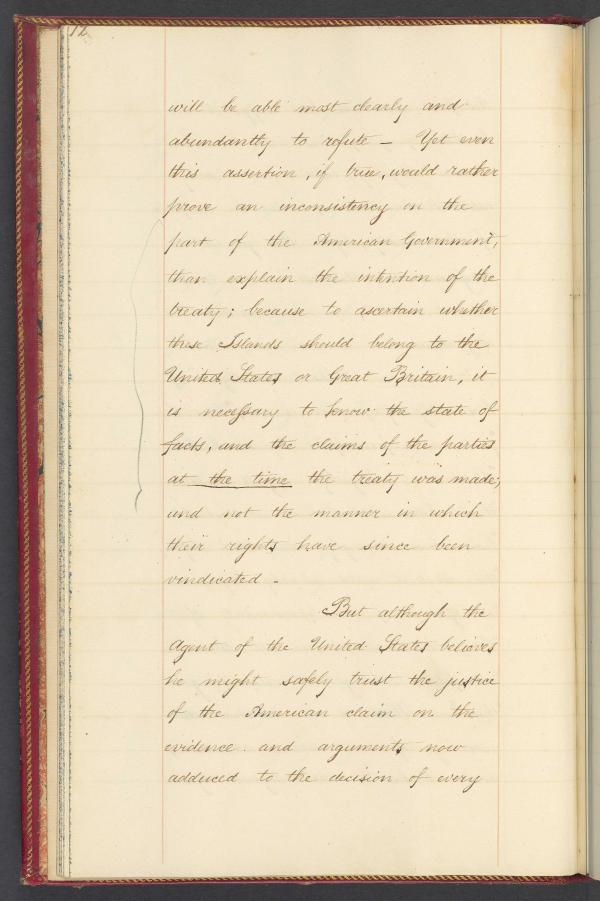 12
will be able most clearly and
abundantly to refute – Yet even
this assertion, if true, would rather
prove an inconsistency on the
part of the American Government,
than explain the intention of the
treaty; because to ascertain whether
these Islands should belong to the
United States or Great Britain, it
is necessary to know the state of
facts, and the claims of the parties
at the time the treaty was made;
and not the manner in which
their rights have since been
vindicated –
But although the
Agent of the United States believes
he might safely trust the justice
of the American claim on the
evidence and arguments now
adduced to the decision of every